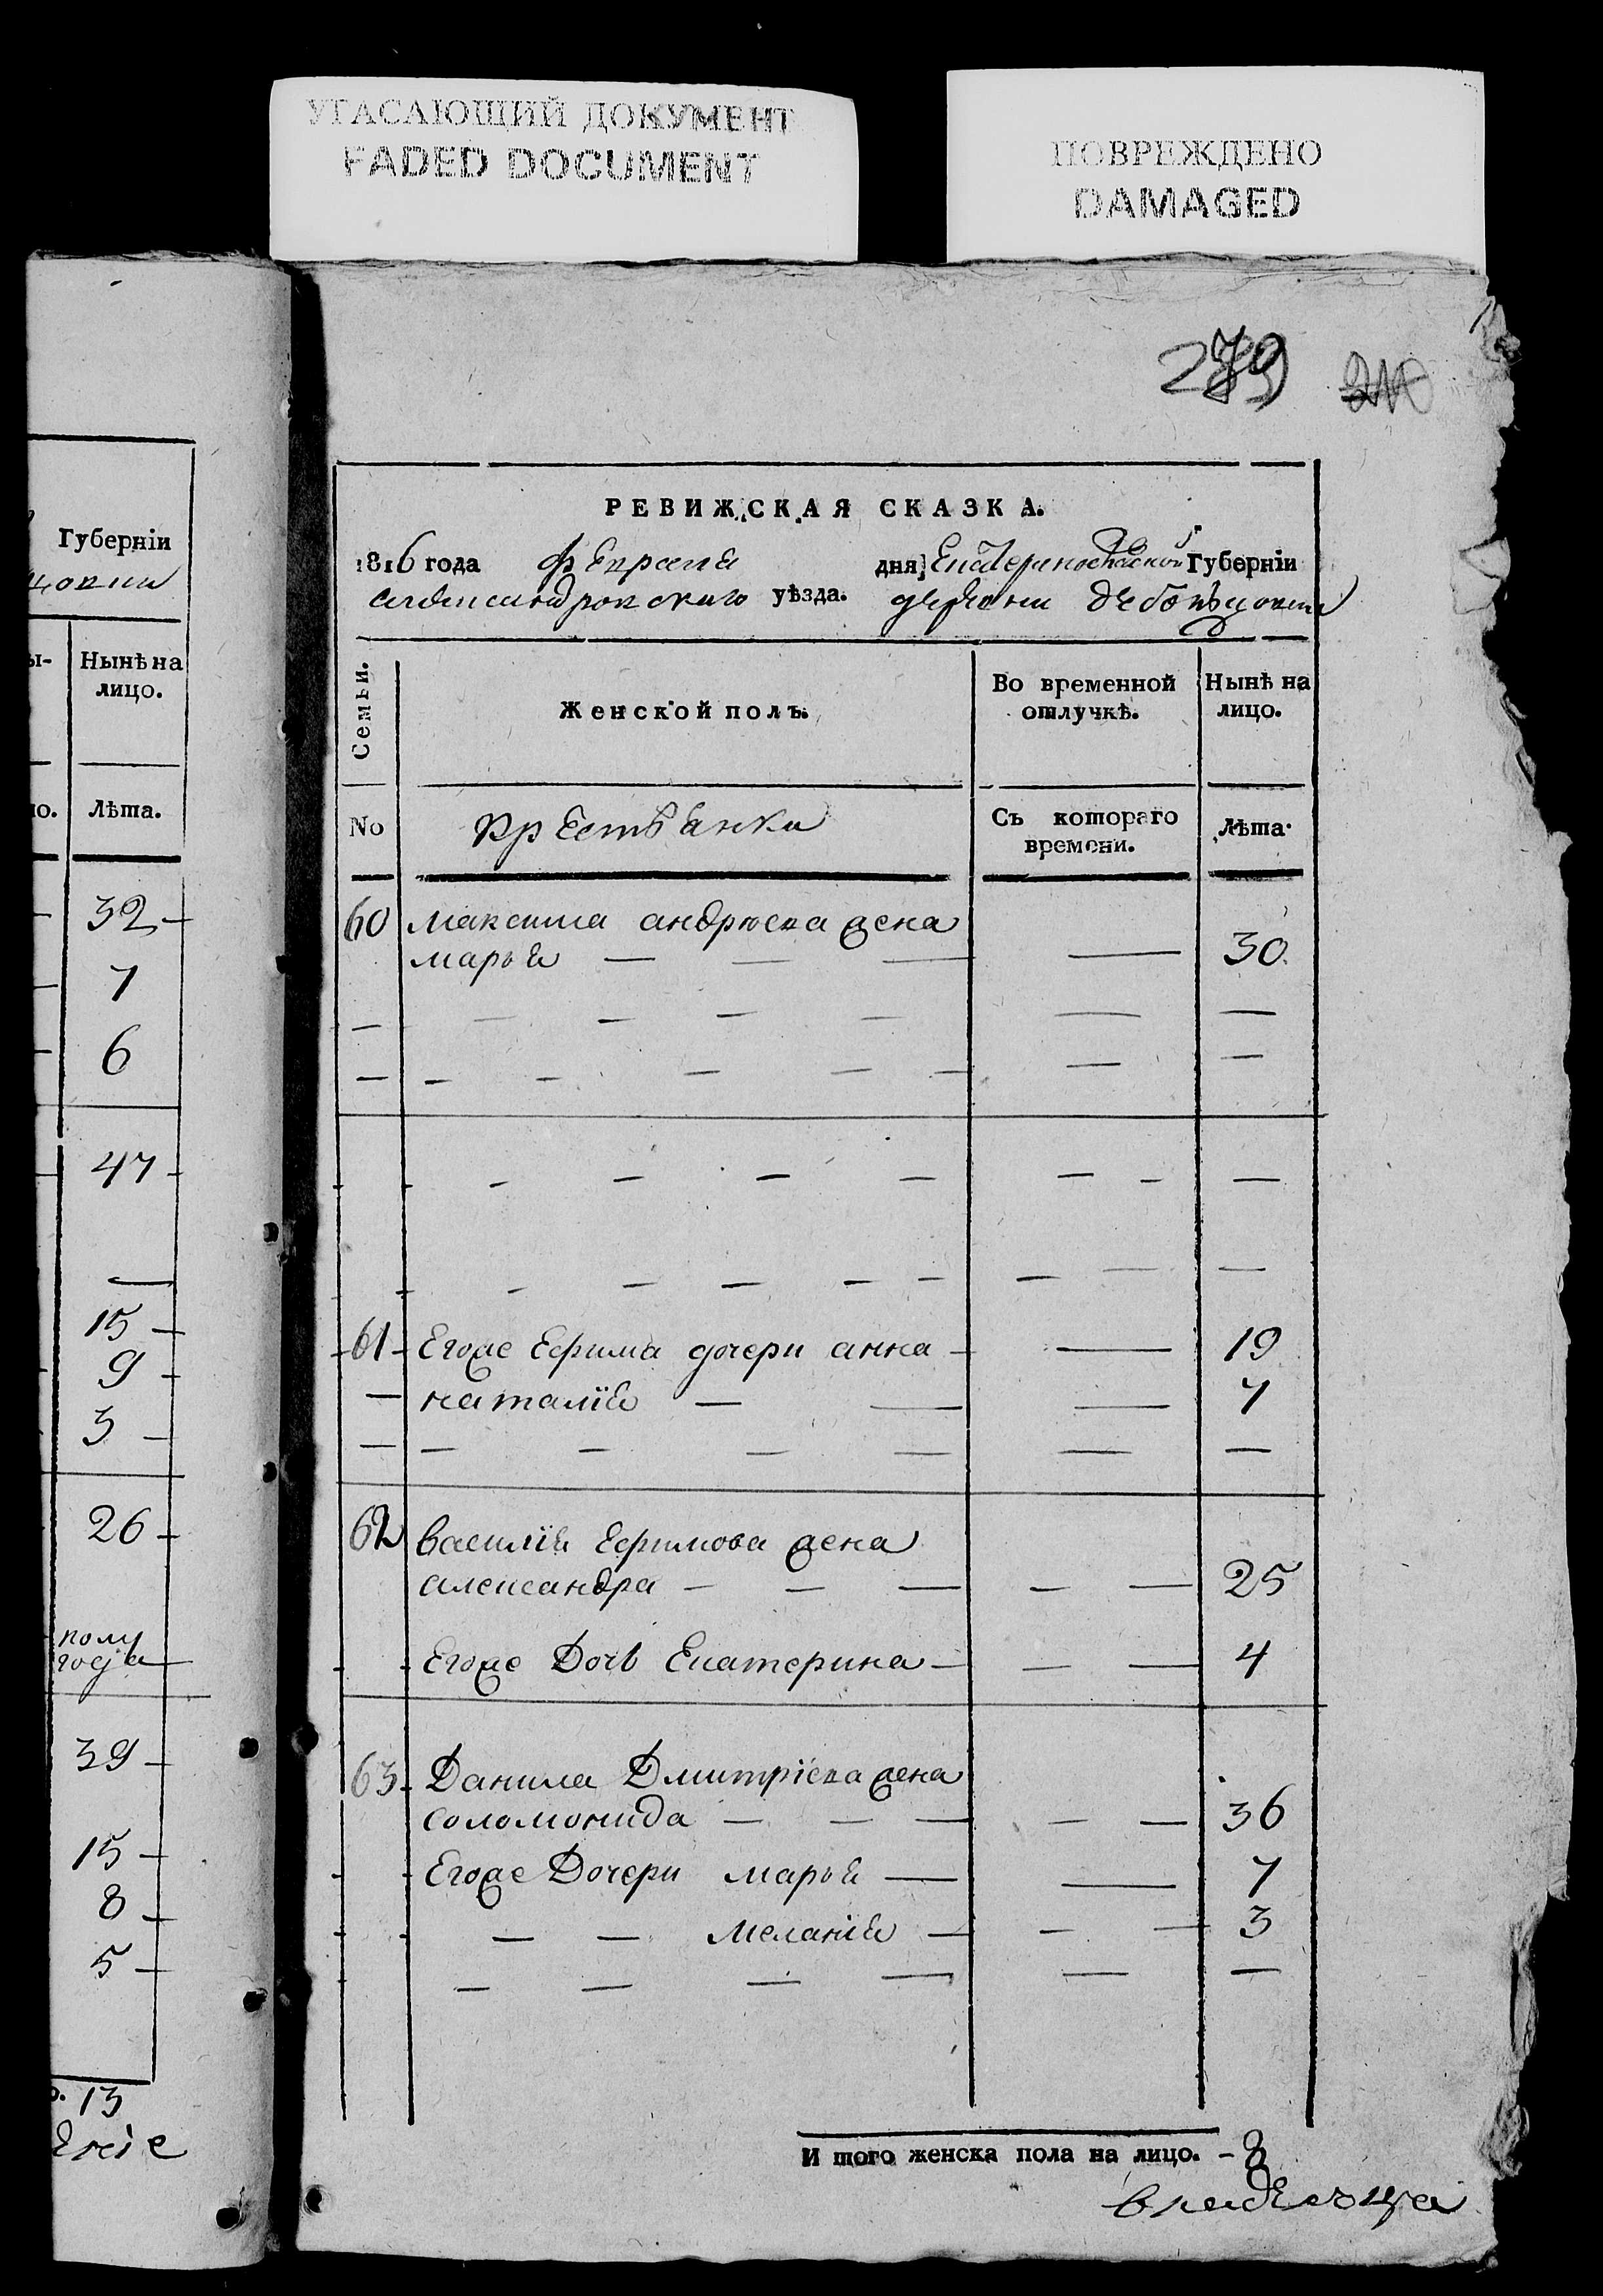 УГАСАЮЩИЙ ДОКУМЕНТ
FADED DOCUMENT
ПОВРЕЖДЕНО
DAMAGED
279
Губерніи
Нынѣ на
лицо.
Лѣта.
32
7
6
47
15
9
3
26
полу
года
39
15
8
5
13
РЕВИЖСКАЯ СКАЗКА.
1816 года февраля дня, Екатеринославской Губерніи
александровскаго уѣзда. деревни
Семьи. Женской полъ. Во временной отлучкѣ. Нынѣ на лицо.
No крестьянки Съ котораго времени. Лѣта.
60 максима андрюева жена
марья — — — — 30
61 Егоже Ефима дочери анна — — 19
— наталія — — — 7
62 василія Ефимова жена
александра — — — — — 25
Егоже Дочь Екатерина — — — 4
63 Данила Дмитріева жена
соломонида — — — — — 36
Егоже Дочери марья — — 7
— — меланія — — — 3
И того женска пола на лицо. - 8